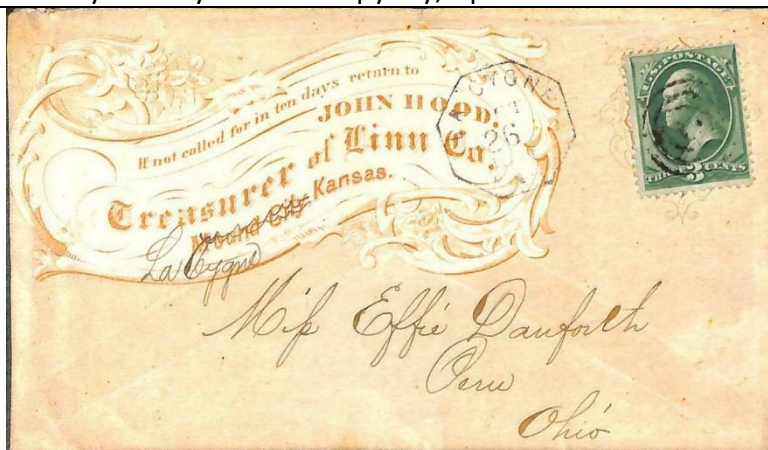 If not called for in ten days return to
JOHN HOOD,
Treasurer of Linn Co.
Mound City Kansas.
La Cygne
LA CYGNE
26
U.S. POSTAGE
THREE 3 CENTS
Miss Effie Danforth
Peru
Ohio